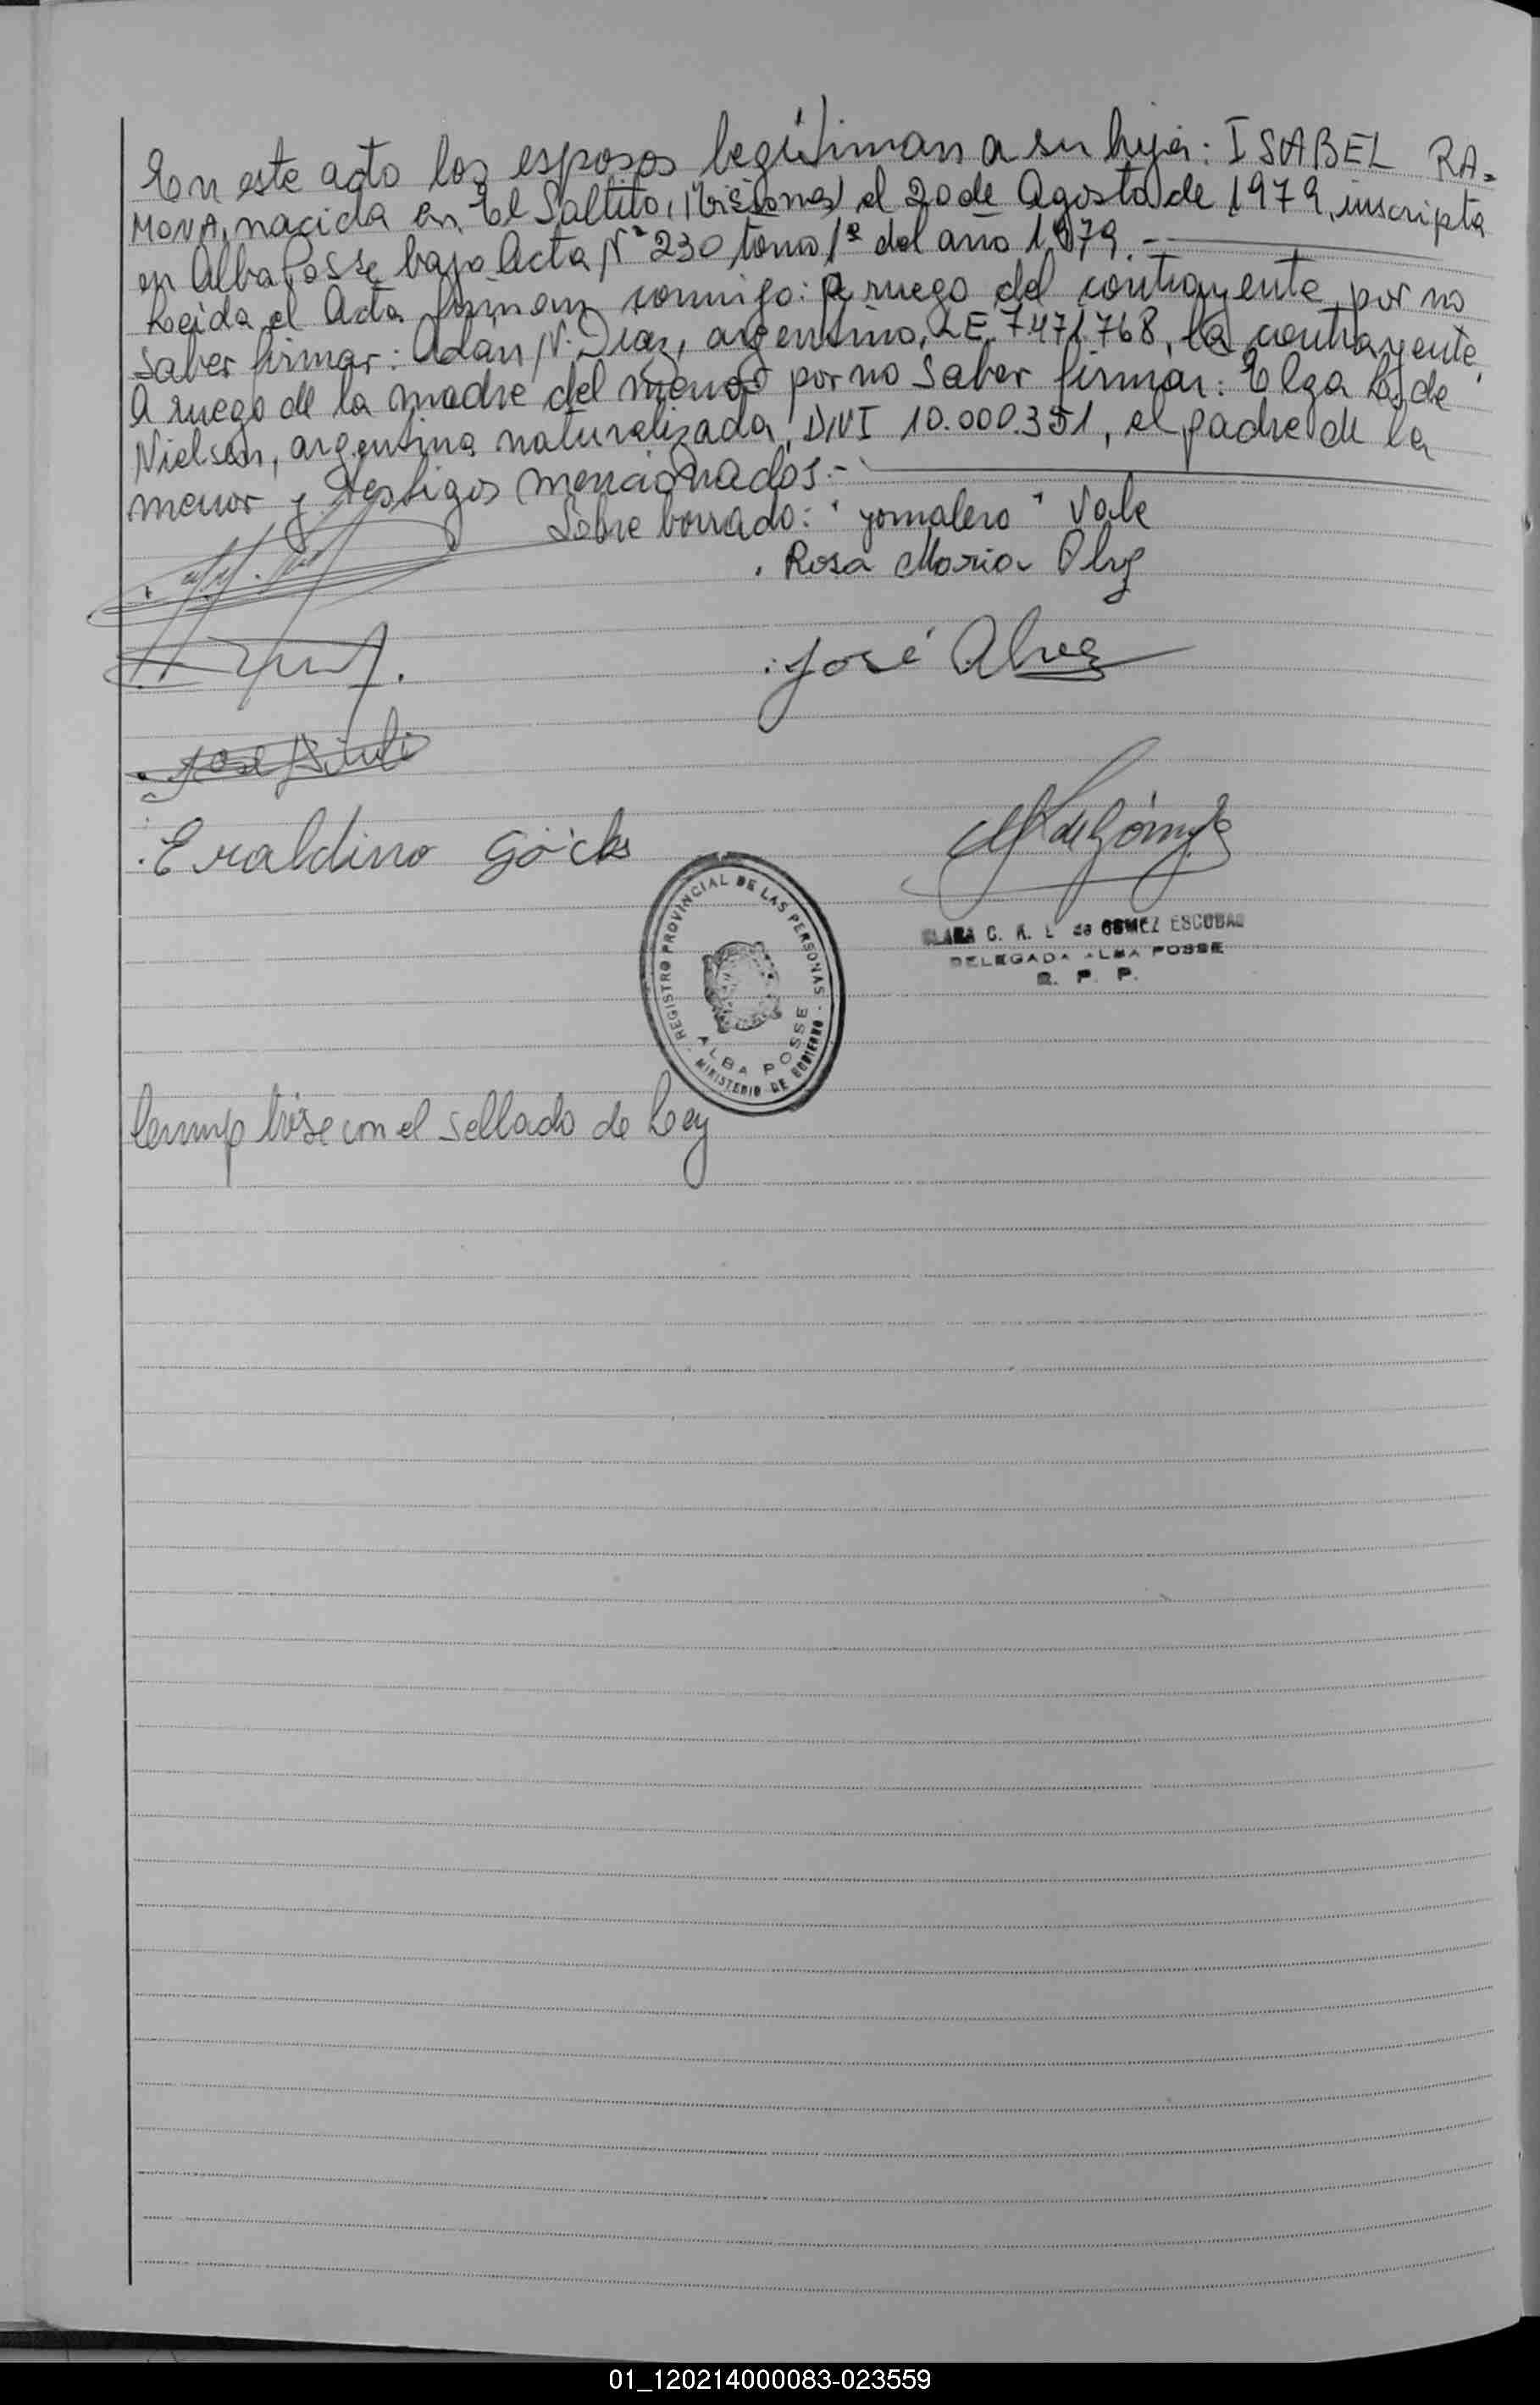 En este acto los esposos legitiman a su hija: ISABEL RA=
MONA, nacida en El Saltito, Misiones, el 20 de Agosto de 1979, inscripta
en Alba Posse bajo Acta Nº 230 tomo 1º del año 1979.-
Leida el Acta firman conmigo: A ruego del contrayente, por no
saber firmar: Adán N. Diaz, argentino, LE. 7.471.768, la contrayente,
A ruego de la madre del menor por no saber firmar: Elga L. de
Nielsen, argentina naturalizada, DNI 10.000.351, el padre de la
menor y testigos mencionados.-
Sobre borrado: "jornalero" Vale
. Rosa Maria Alvez
. José Alvez
. Eraldino Göcks
REGISTRO PROVINCIAL DE LAS PERSONAS
ALBA POSSE
MINISTERIO DE GOBIERNO
CLARA C. K. L de GOMEZ ESCOBAR
DELEGADA ALBA POSSE
R. P. P.
con el sellado de Ley
01_120214000083-023559